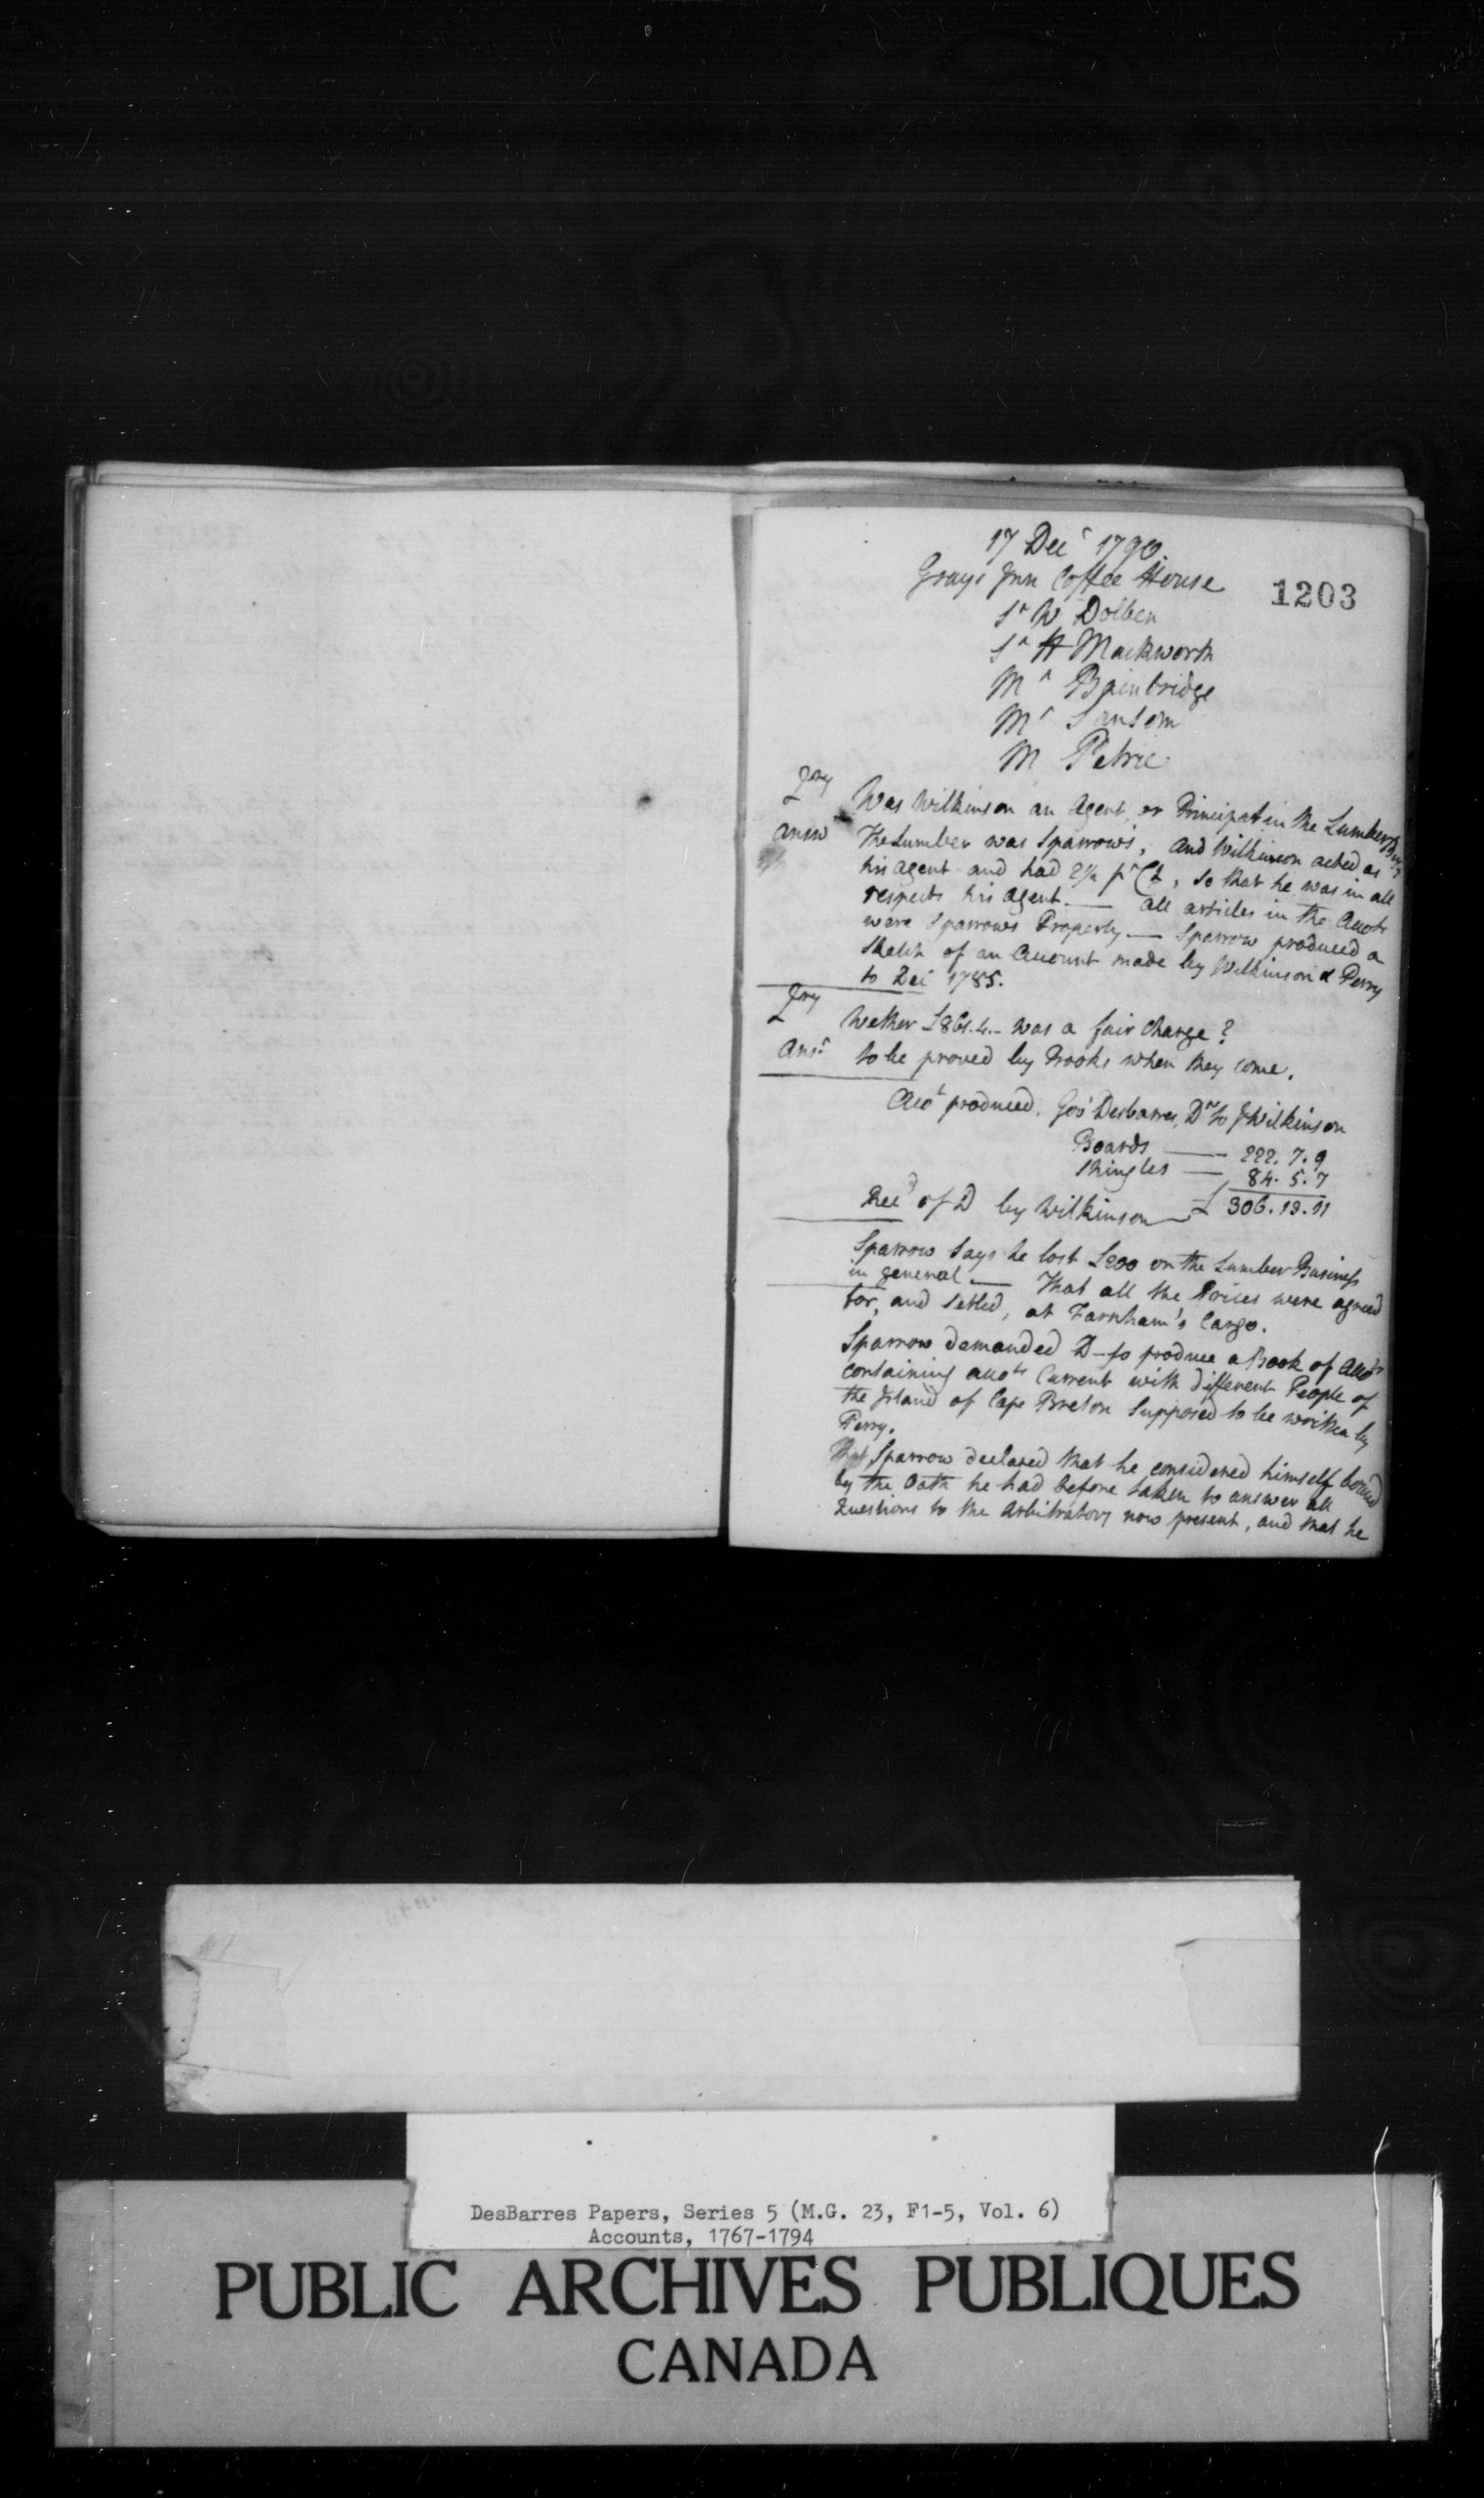 17 Decr 1790.
Grays Inn Coffee House
1203
Sr W Dolben
Sr H Mackworth
Mr Bainbridge
Mr Sansom
M Petrie
Qry Was Wilkinson an Agent, or Principal in the Lumber
Answ The Lumber was Sparrow's, and Wilkinson acted as
his agent and had 2½ pr Ct, so that he was in all
respects his agent. — All articles in the Accots
were Sparrows Property — Sparrow produced a
Sketch of an Account made by Wilkinson & Perry
to Dec 1785.
Qry Wether £861.4.- was a fair Charge?
Ansr to be proved by Books when they come.
Acct produced. Govr Desbarres, Dr to J Wilkinson
Boards — 222. 7. 9
Shingles — 84. 5. 7
Recd of D by Wilkinson — £ 306. 13. 11
Sparrow says he lost £200 on the Lumber Business
in general — That all the Prices were agreed
for, and Setled, at Farnham's Cargo.
Sparrow demanded D- to produce a Book of Accots
containing accots Current with different People of
the Island of Cape Breton Supposed to be written by
Perry.
Sparrow declared that he considered himself bound
by the Oath he had before taken to answer all
Questions to the Arbitrators now present, and that he
DesBarres Papers, Series 5 (M.G. 23, F1-5, Vol. 6)
Accounts, 1767-1794
PUBLIC ARCHIVES PUBLIQUES
CANADA